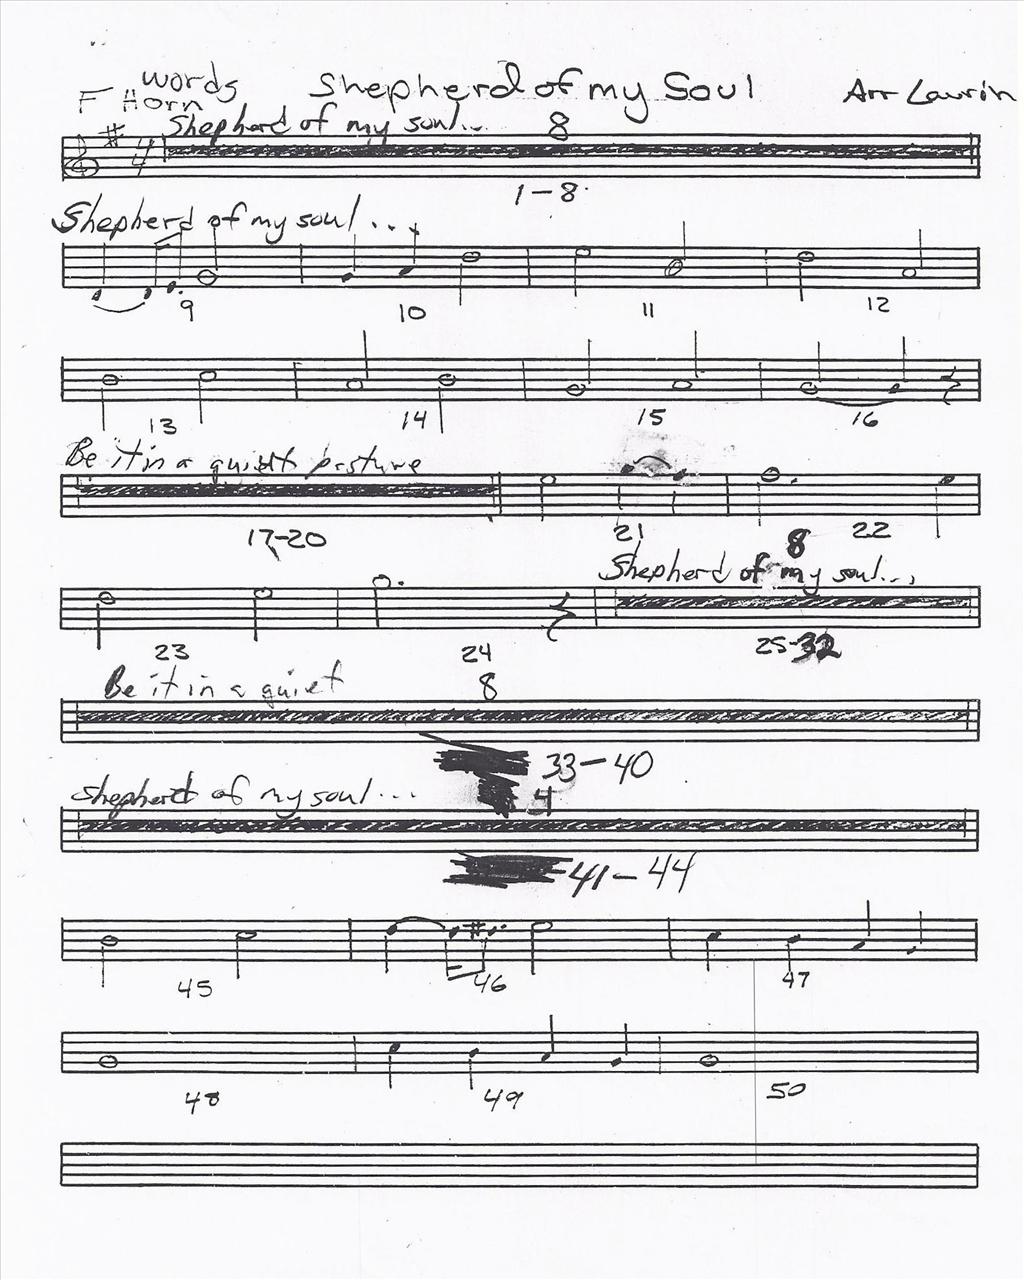 words Shepherd of my Soul Arr Laurin
F Horn
Shepherd of my soul... 8
4/4
1-8
Shepherd of my soul...
9 10 11 12
13 14 15 16
Be it in a quiet pasture
17-20 21 22
8
Shepherd of my soul...
23 24 25-32
Be it in a quiet 8
33-40
Shepherd of my soul... 4
41-44
45 46 47
48 49 50